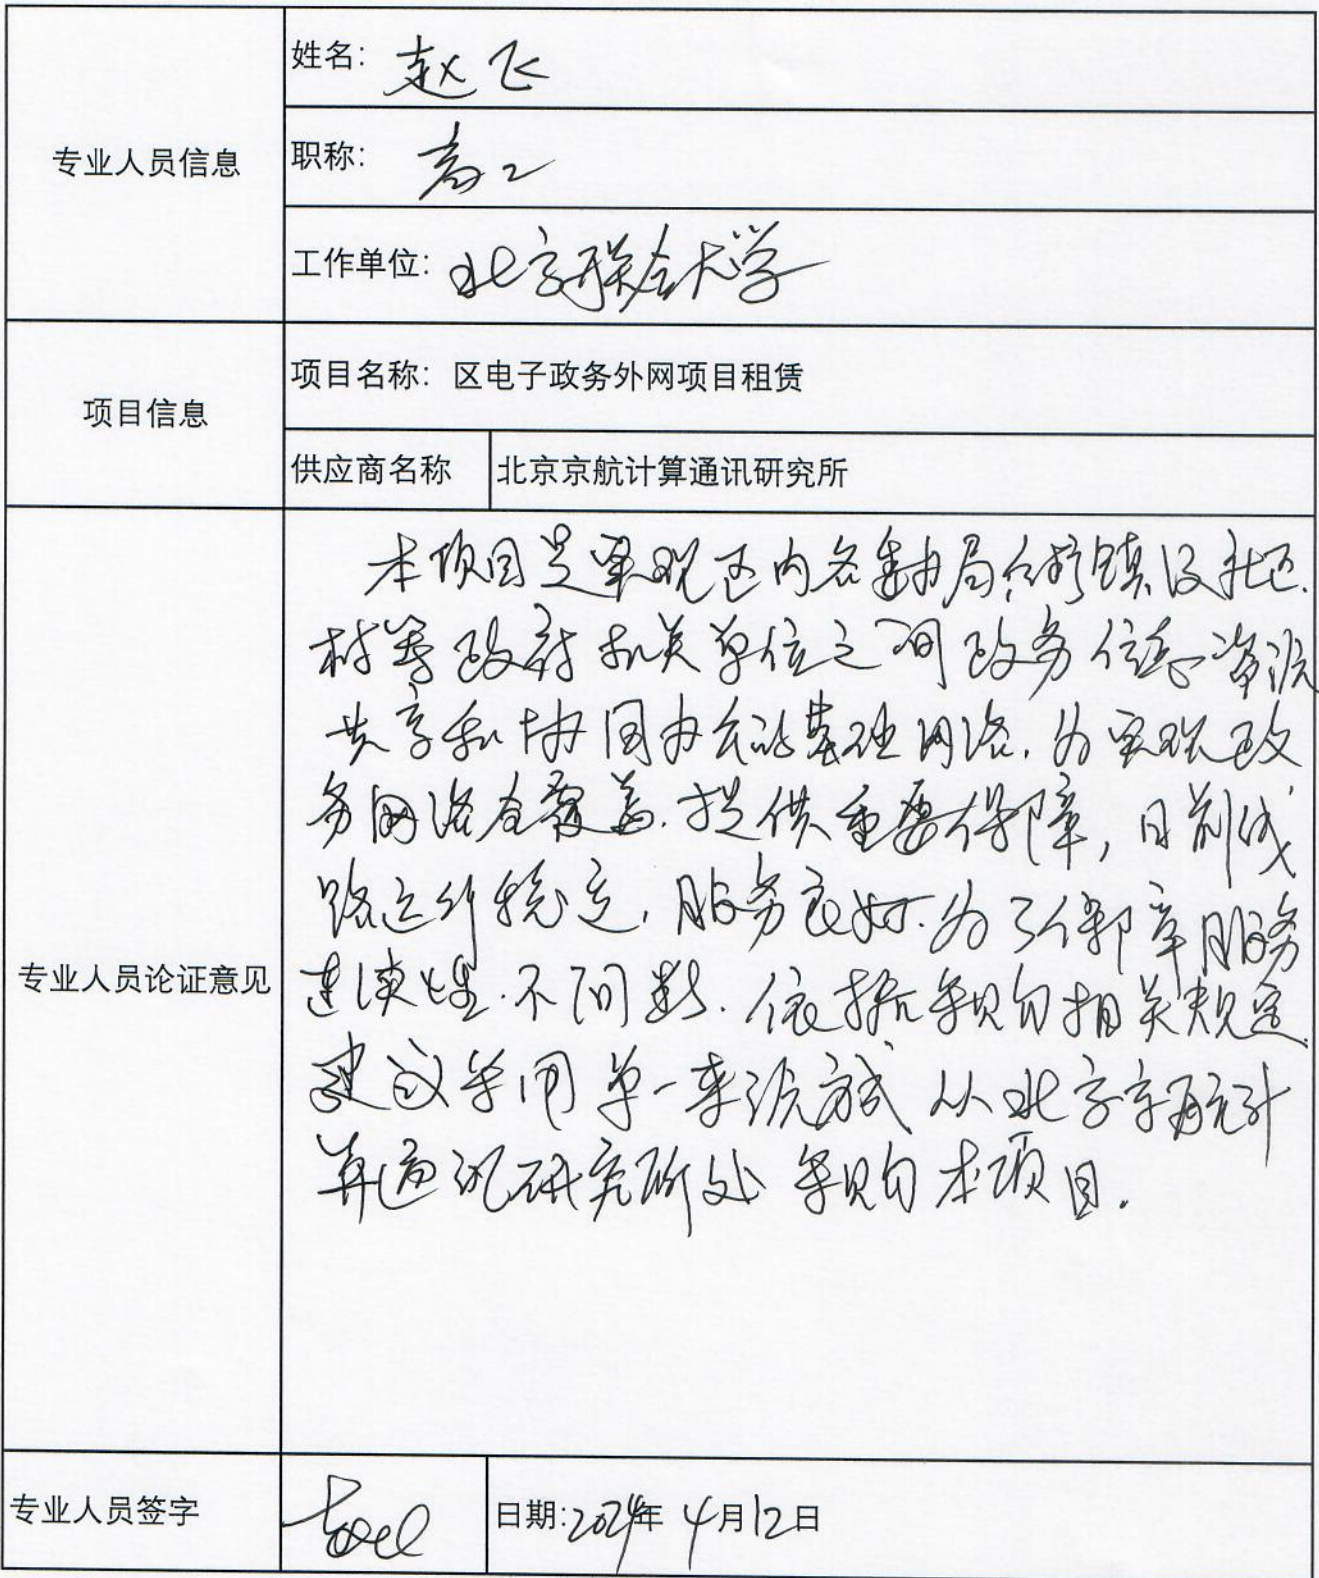 专业人员信息
姓名：赵飞
职称：高工
工作单位：北京联合大学
项目信息
项目名称：区电子政务外网项目租赁
供应商名称 北京京航计算通讯研究所
专业人员论证意见
本项目是实现区内各委办局、街镇及社区、
村等政府机关单位之间政务信息资源
共享和协同办公的基础网络，为实现政
务网络全覆盖提供重要保障，目前线
路运行稳定，服务良好。为了保障服务
连续性、不间断，依据采购相关规定，
建议采用单一来源方式从北京京航计
算通讯研究所处采购本项目。
专业人员签字
日期：2024年4月12日